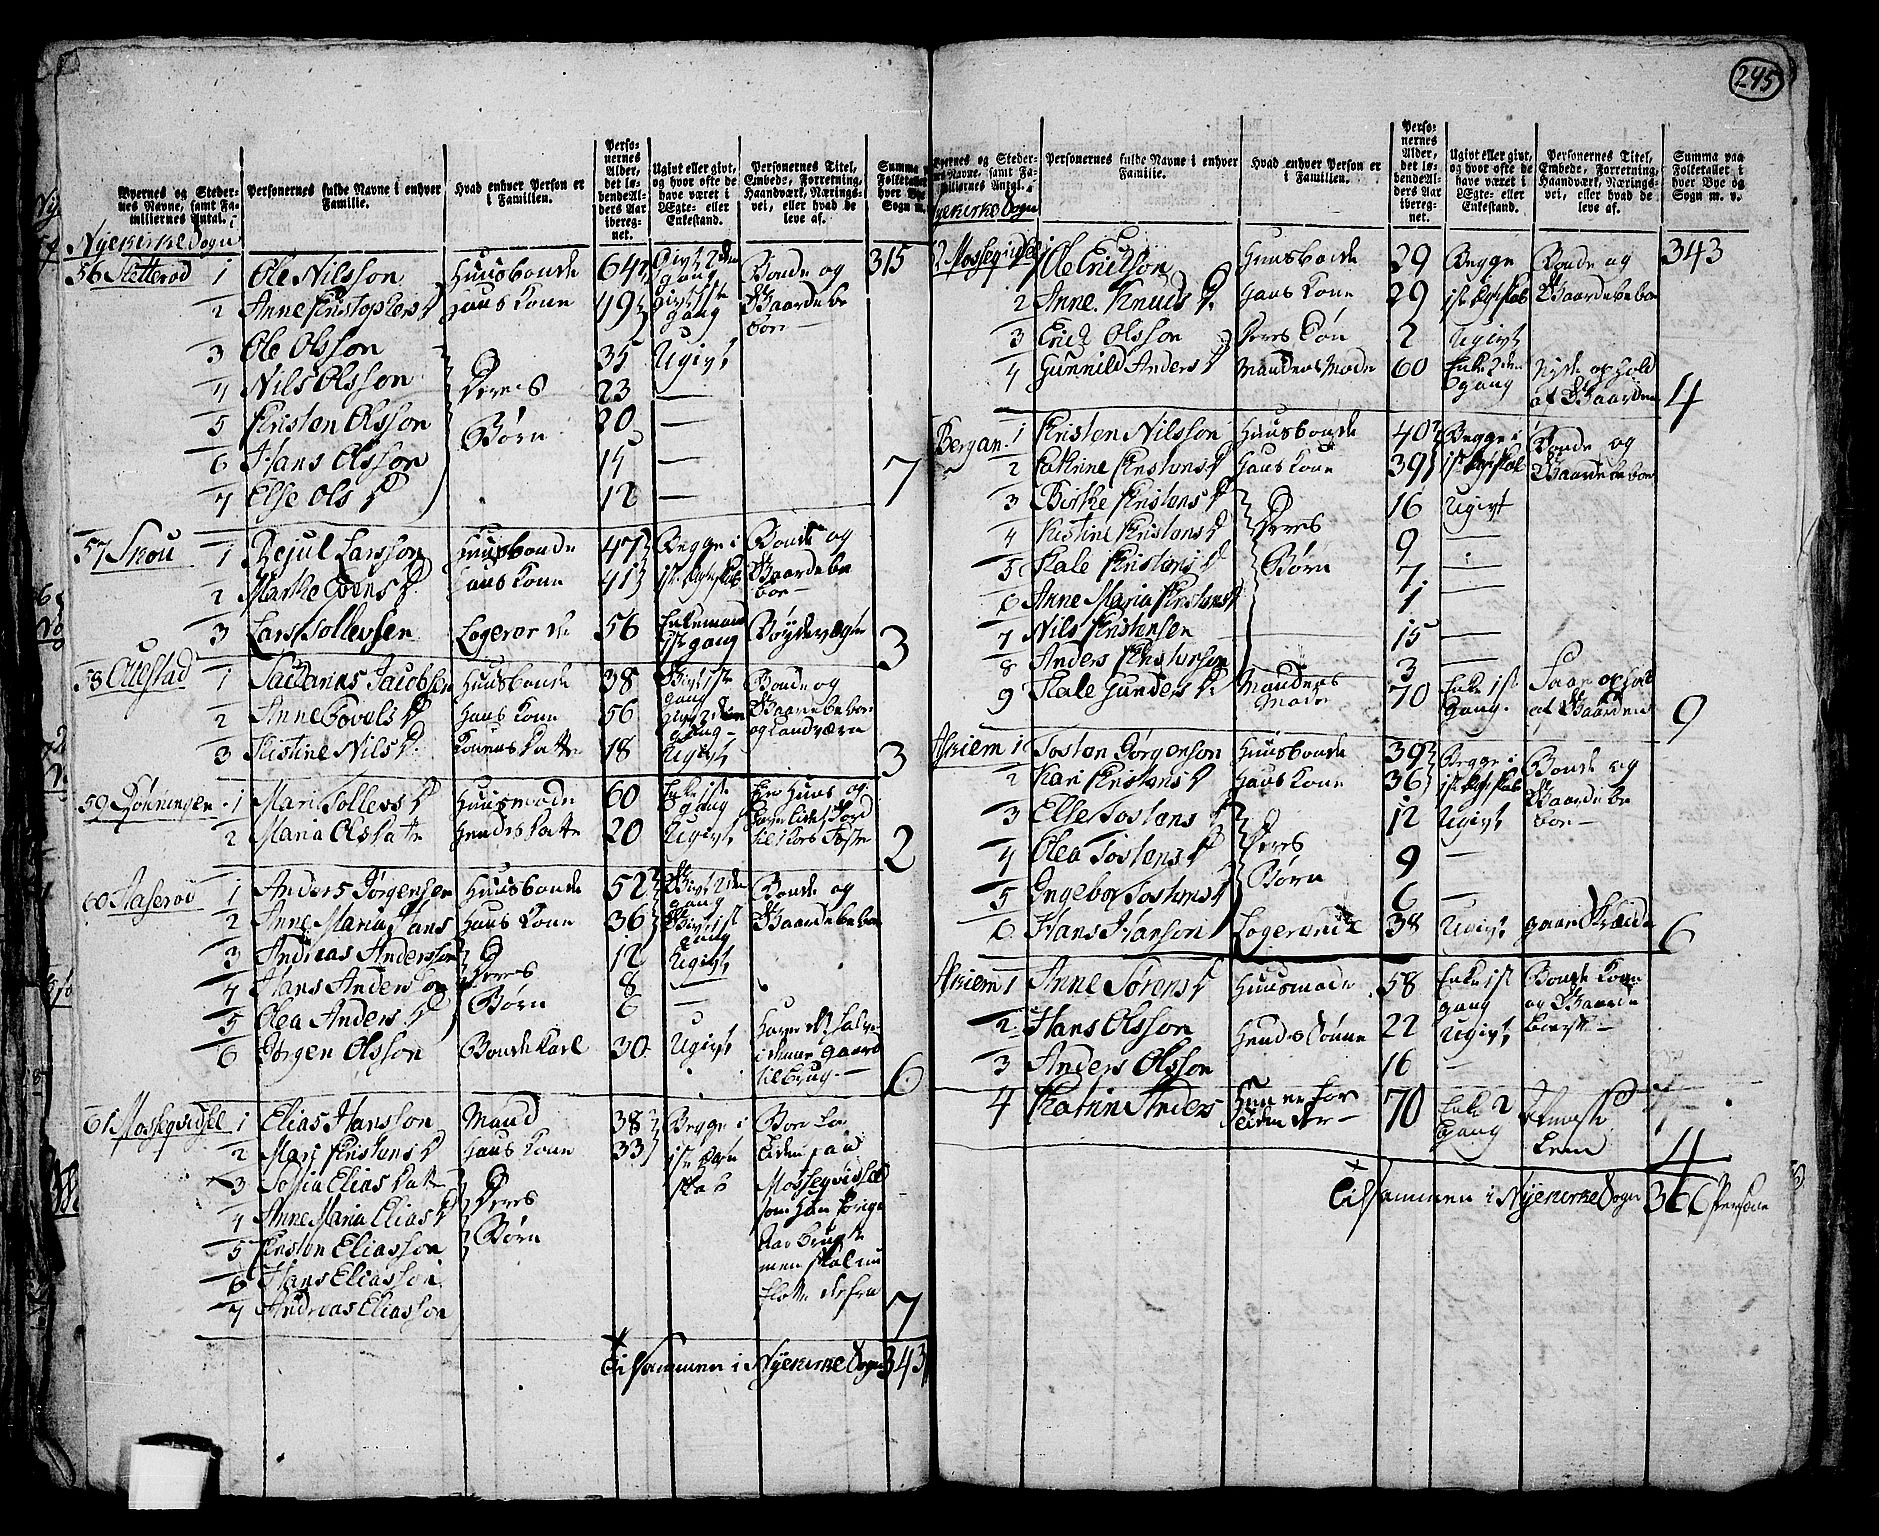 245
Byernes og Steder-
nes Navne, samt Fa-
miliernes Antal.
Personernes fulde Navne i enhver
Familie.
Hvad enhver Person er
i Familien.
Perso-
nernes
Alder,
det lø-
bende Al-
ders Aar
iberreg-
net.
Ugivt eller givt,
og hvor ofte de
have været i
Ægte- eller
Enkestand.
Personernes Titel,
Embede, Forretning,
Haandværk, Nærings-
vei, eller hvad de
leve af.
Nykirke Sogn
315
56 Sletterød 1 Ole Nilsson Huusbonde 64 Givt 2den gang Bonde og
2 Anne Kristophers D Hans Kone 49 Givt 1ste gang Gaardebeboer
3 Ole Olsson 35 Ugivt
4 Nils Olsson Deres 23 —
5 Kristen Olsson Børn 20 —
6 Hans Olsson 15 —
7 Else Ols D 12 — 7
57 Snou 1 Larsson Huusbonde 47 Begge i Bonde og
2 Marthe D. Hans Kone 41 1ste Egteskab Gaardebeboer
3 Lars Tollevsen Logerende 56 Enkemand 1ste gang 3
58 1 Sacharias Jacobsen Huusbonde 38 Givt 1ste gang Bonde og
2 Anne D Hans Kone 56 Givt 2den gang Gaardebeboer og Landværn
3 Kistine Nils D. Konens Datter 18 Ugivt 3
59 Gønningen 1 Mari Tollevs D Huusmoder 60 Enke 1ste gang Huus og
2 Maria Ols Datter Hendes Datter 20 Ugivt 2
60 Haserød 1 Anders Jørgensen Huusbonde 52 Givt 2den gang Bonde og
2 Anne Maria Hans Hans Kone 36 Givt 1ste gang Gaardebeboer
3 Andreas Andersson 12 Ugivt
4 Hans Anderson Deres 8 —
5 Olea Anders D Børn 6 —
6 Jørgen Olsson Bondekarl 30 Ugivt Haver det halve i denne Gaard til brug 6
61 Mossegvidsel 1 Elias Hansson Mand 38 Begge i
2 Mari Kristens D Hans Kone 33 1ste
3 Sofia Elias Datter Mossegvidsel
4 Anne Maria Elias D Deres som han
5 Kristen Eliasson Børn
6 Hans Eliasson men skal nu
7 Andreas Eliasson flötte derfra 7
Tilsammen i Nykirke Sogn 343
Personernes fulde Navne i enhver
Familie.
Hvad enhver Person er
i Familien.
Perso-
nernes
Alder,
det lø-
bende Al-
ders Aar
iberreg-
net.
Ugivt eller givt,
og hvor ofte de
have været i
Ægte- eller
Enkestand.
Personernes Titel,
Embede, Forretning,
Haandværk, Nærings-
vei, eller hvad de
leve af.
Summa paa
Folketallet i
hver Bye og
Sogn m. v.
Nykirke Sogn
343
Mossegvidsel 1 Ole Erickson Huusbonde 29 Begge Bonde og
2 Anne Knuds D. Hans Kone 29 1ste Egteskab Gaardebeboer
3 Erick Olsson Deres Søn 2 Ugivt
4 Gunnild Anders D Mandens Moder 60 Enke 2den gang Nyder ophold af Gaarden 4
Bergan 1 Kristen Nilsson Huusbonde 40 Begge i Bonde og
2 Kathrine Kristens D Hans Kone 39 1ste Egteskab Gaardebeboer
3 Birthe Kristens D 16 Ugivt
4 Kistine Kristens D Deres 9 —
5 Kale Kristens D Børn 7 —
6 Anne Maria Kristens D 1 —
7 Nils Kristensen 15 —
8 Anders Kristenson 3 —
9 Kale Gunders D. Mandens Moder 70 Enke 1ste Gang. Faar ophold af Gaarden 9
1 Tosten Jørgenson Huusbonde 39 Begge i Bonde og
2 Kari Kristens D Hans Kone 36 1ste Egteskab Gaardebeboer
3 Else Tostens D 12 Ugivt
4 Olea Tostens D Deres 9 —
5 Ingebor Tostens D Børn 6 —
6 Hans Hanson Logerende 38 Ugivt 6
1 Anne Sørens D Huusmoder 58 Enke 1ste gang Bonde Kone og Gaardebeboer
2 Hans Olsson Hendes Sønner 22 Ugivt
3 Anders Olsson 16 —
4 Katrin Anders 70 Enke 2 Gang Lem 4
Tilsammen i Nykirke Sogn 366 Persone